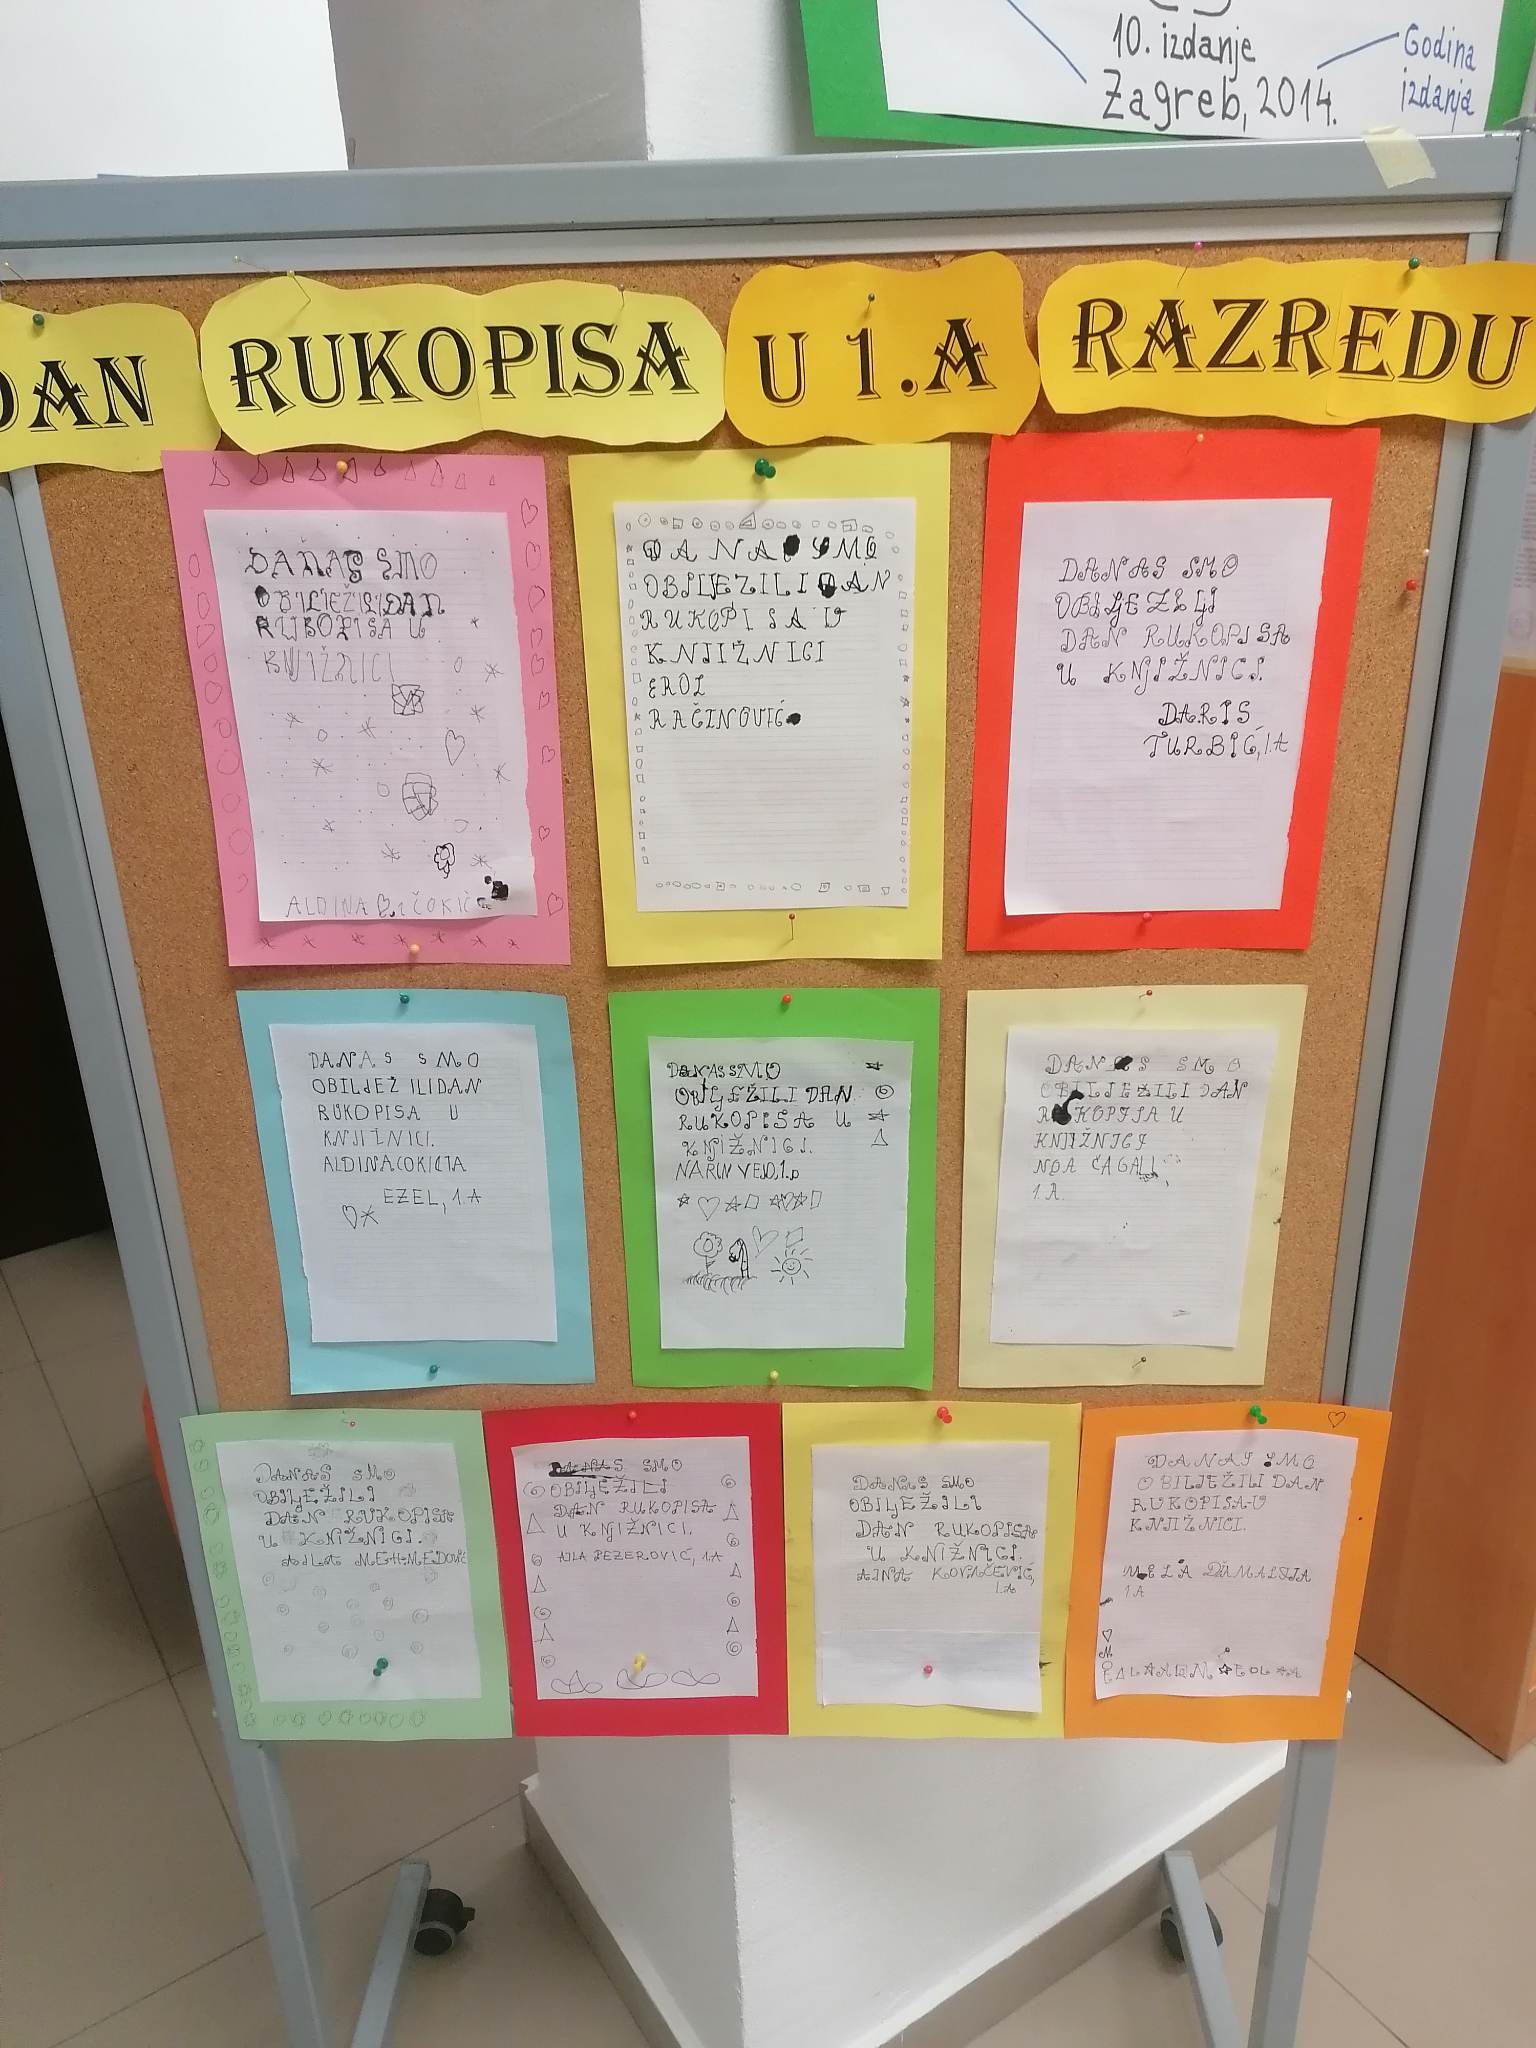 10. izdanje
Zagreb, 2014.
Godina
izdanja
DAN RUKOPISA U 1.A RAZREDU
DANAS SMO
OBILJEŽILI DAN
RUKOPISA U
KNJIŽNICI
ALDINA
DANAS SMO
OBILJEZILI DAN
RUKOPISA U
KNJIŽNICI
EROL
RAČINOVIĆ
DANAS SMO
OBILJEZILJI
DAN RUKOPISA
U KNJIŽNICI.
DARIS
TURBIĆ, 1.A
DANAS SMO
OBILJEŽ ILIDAN
RUKOPISA U
KNJIŽNICI.
EZEL, 1.A
DANAS SMO
OBILJEŽILI DAN
RUKOPISA U
KNJIŽNICI.
DANAS SMO
OBILJEŽILI DAN
RUKOPISA U
KNJIŽNICI
ČAGALJ
1.A.
DANAS SMO
OBILJEŽILI
DAN RUKOPISA
U KNIŽNICI.
AJLA MEHMEDOVIĆ
DANAS SMO
OBILJEŽILI
DAN RUKOPISA
U KNJIŽNICI.
AJLA PEZEROVIĆ, 1.A
DANAS SMO
OBILJEŽILI
DAN RUKOPISA
U KNIŽNICI.
AJNA KOVAČEVIĆ,
1.A
DANAS SMO
OBILJEŽILI DAN
RUKOPISA-U
KNJIŽNICI.
MELA
1.A